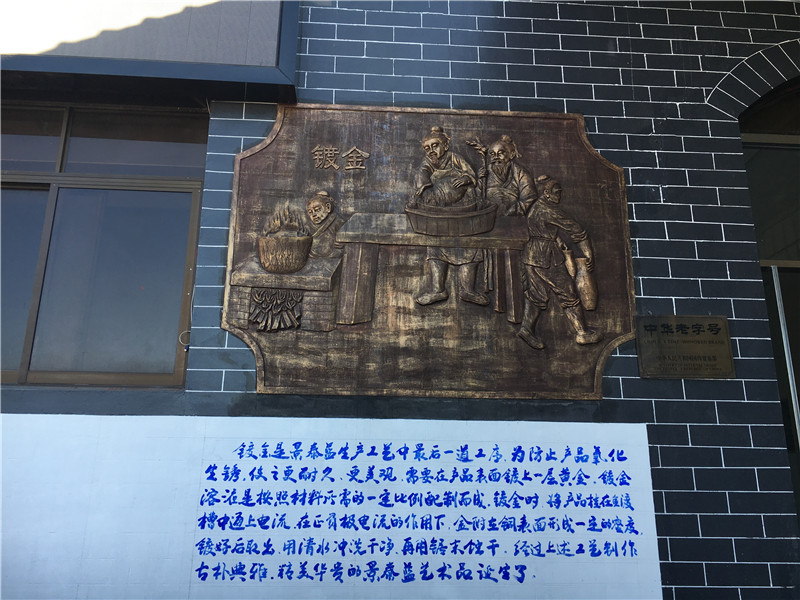 镀金
中华老字号
镀金是景泰蓝生产工艺中最后一道工序.为防止产品氧化
生锈,使之更耐久.更美观.需要在产品表面镀上一层黄金.镀金
溶液是按照材料所需的一定比例配制而成.镀金时.将产品挂在
槽中通上电流.在正负极电流的作用下.金附在铜表面形成一定的密度.
镀好后取出.用清水冲洗干净.再用锯末蚀干.经过上述工艺制作
古朴典雅.精美华贵的景泰蓝艺术品诞生了.